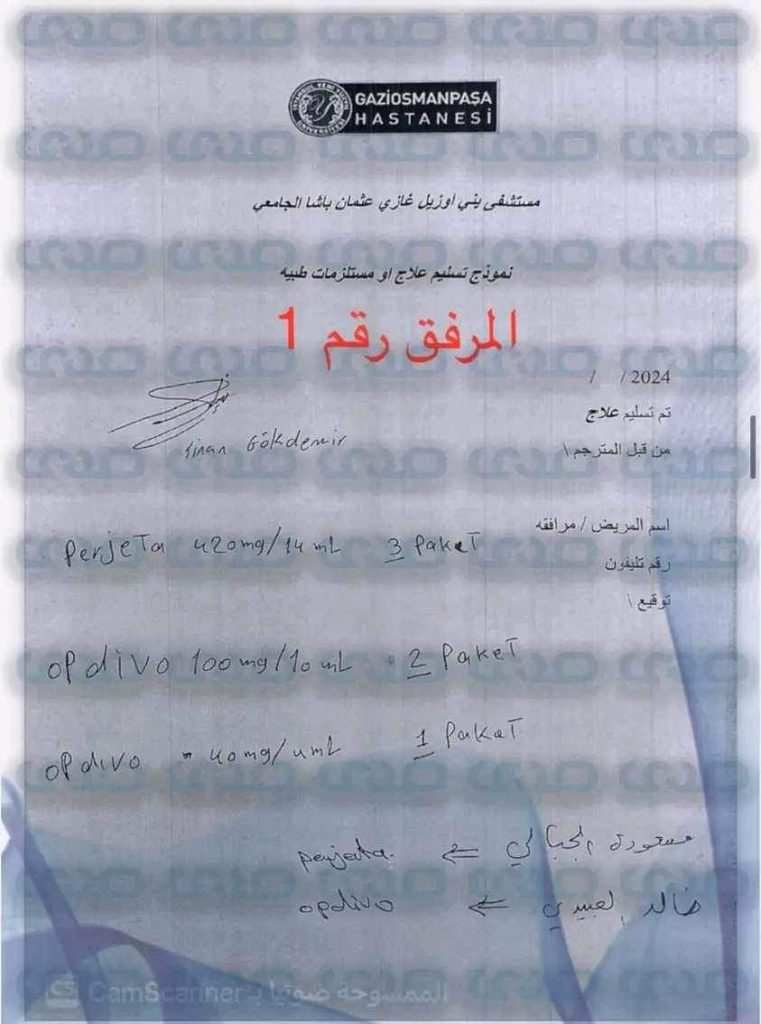 GAZİOSMANPAŞA
HASTANESİ
مستشفى يني اوزيل غازي عثمان باشا الجامعي
نموذج تسليم علاج او مستلزمات طبيه
المرفق رقم 1
/ / 2024
تم تسليم علاج
من قبل المترجم \
Sinan Gökdemir
اسم المريض / مرافقه
رقم تليفون
توقيع \
Perjeta 420mg/14mL 3 Paket
opdivo 100mg/10mL 2 Paket
opdivo 40mg/4mL 1 Paket
مسعودة الجبالي ⇐ perjeta.
خالد العبيدي ⇐ opdivo
CS CamScanner الممسوحة ضوئيا بـ
صدى